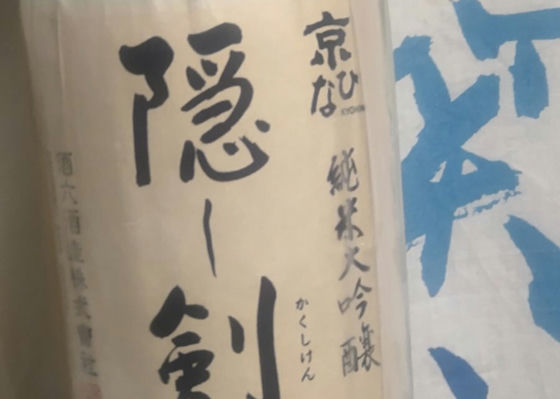 京ひな
KYOHINA
純米大吟醸
隠し剣
かくしけん
酒六酒造株式會社